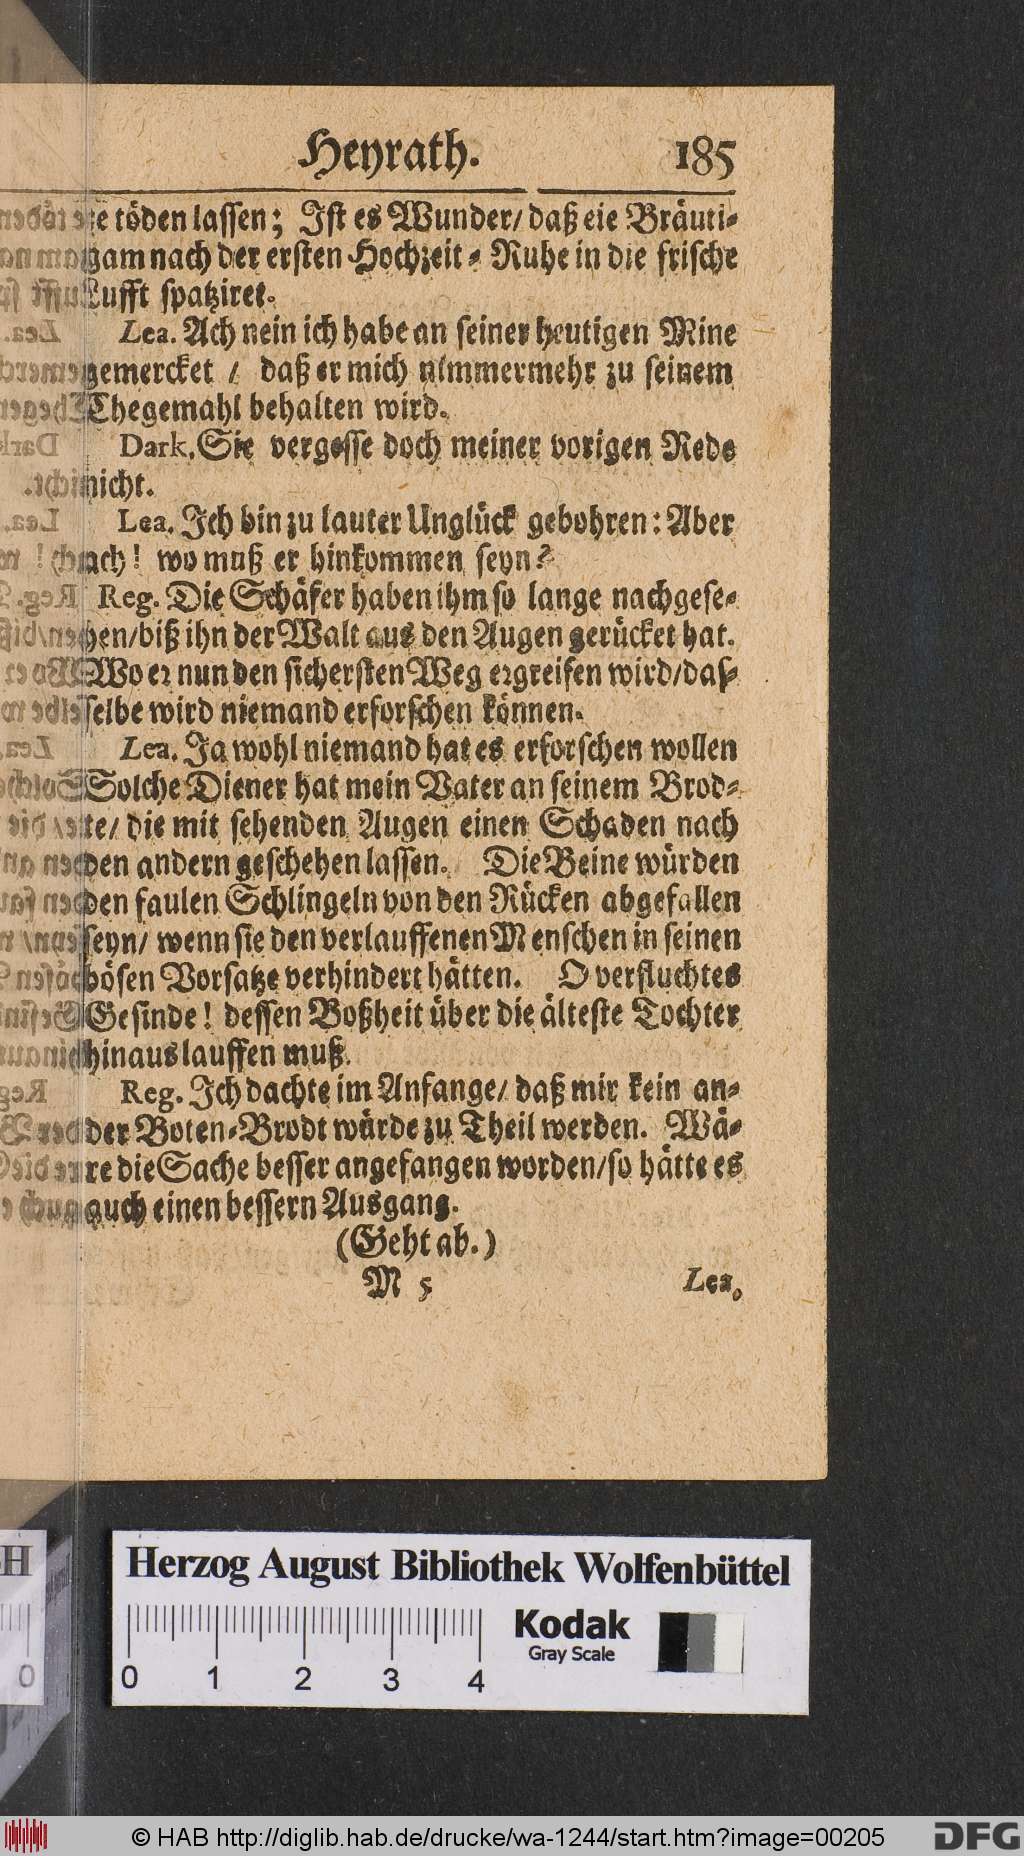 Heyrath. 185
te töden lassen; Ist es Wunder/ daß eie Bräuti-
gam nach der ersten Hochzeit-Ruhe in die frische
Lufft spatziret.
Lea. Ach nein ich habe an seiner heutigen Mine
gemercket / daß er mich nimmermehr zu seinem
Ehegemahl behalten wird.
Dark. Sie vergesse doch meiner vorigen Rede
nicht.
Lea. Ich bin zu lauter Unglück gebohren: Aber
ach! wo muß er hinkommen seyn?
Reg. Die Schäfer haben ihm so lange nachgese-
hen/biß ihn der Walt aus den Augen gerücket hat.
Wo er nun den sichersten Weg ergreifen wird/das-
selbe wird niemand erforschen können.
Lea. Ja wohl niemand hat es erforschen wollen
Solche Diener hat mein Vater an seinem Brod-
te/ die mit sehenden Augen einen Schaden nach
den andern geschehen lassen. Die Beine würden
den faulen Schlingeln von den Rücken abgefallen
seyn/ wenn sie den verlauffenen Menschen in seinen
bösen Vorsatze verhindert hätten. O verfluchtes
Gesinde! dessen Boßheit über die älteste Tochter
hinaus lauffen muß.
Reg. Ich dachte im Anfange/ daß mir kein an-
der Boten-Brodt würde zu Theil werden. Wä-
re die Sache besser angefangen worden/so hätte es
auch einen bessern Ausgang.
(Geht ab.)
M 5 Lea,
Herzog August Bibliothek Wolfenbüttel
Kodak
Gray Scale
0 1 2 3 4
© HAB http://diglib.hab.de/drucke/wa-1244/start.htm?image=00205
DFG